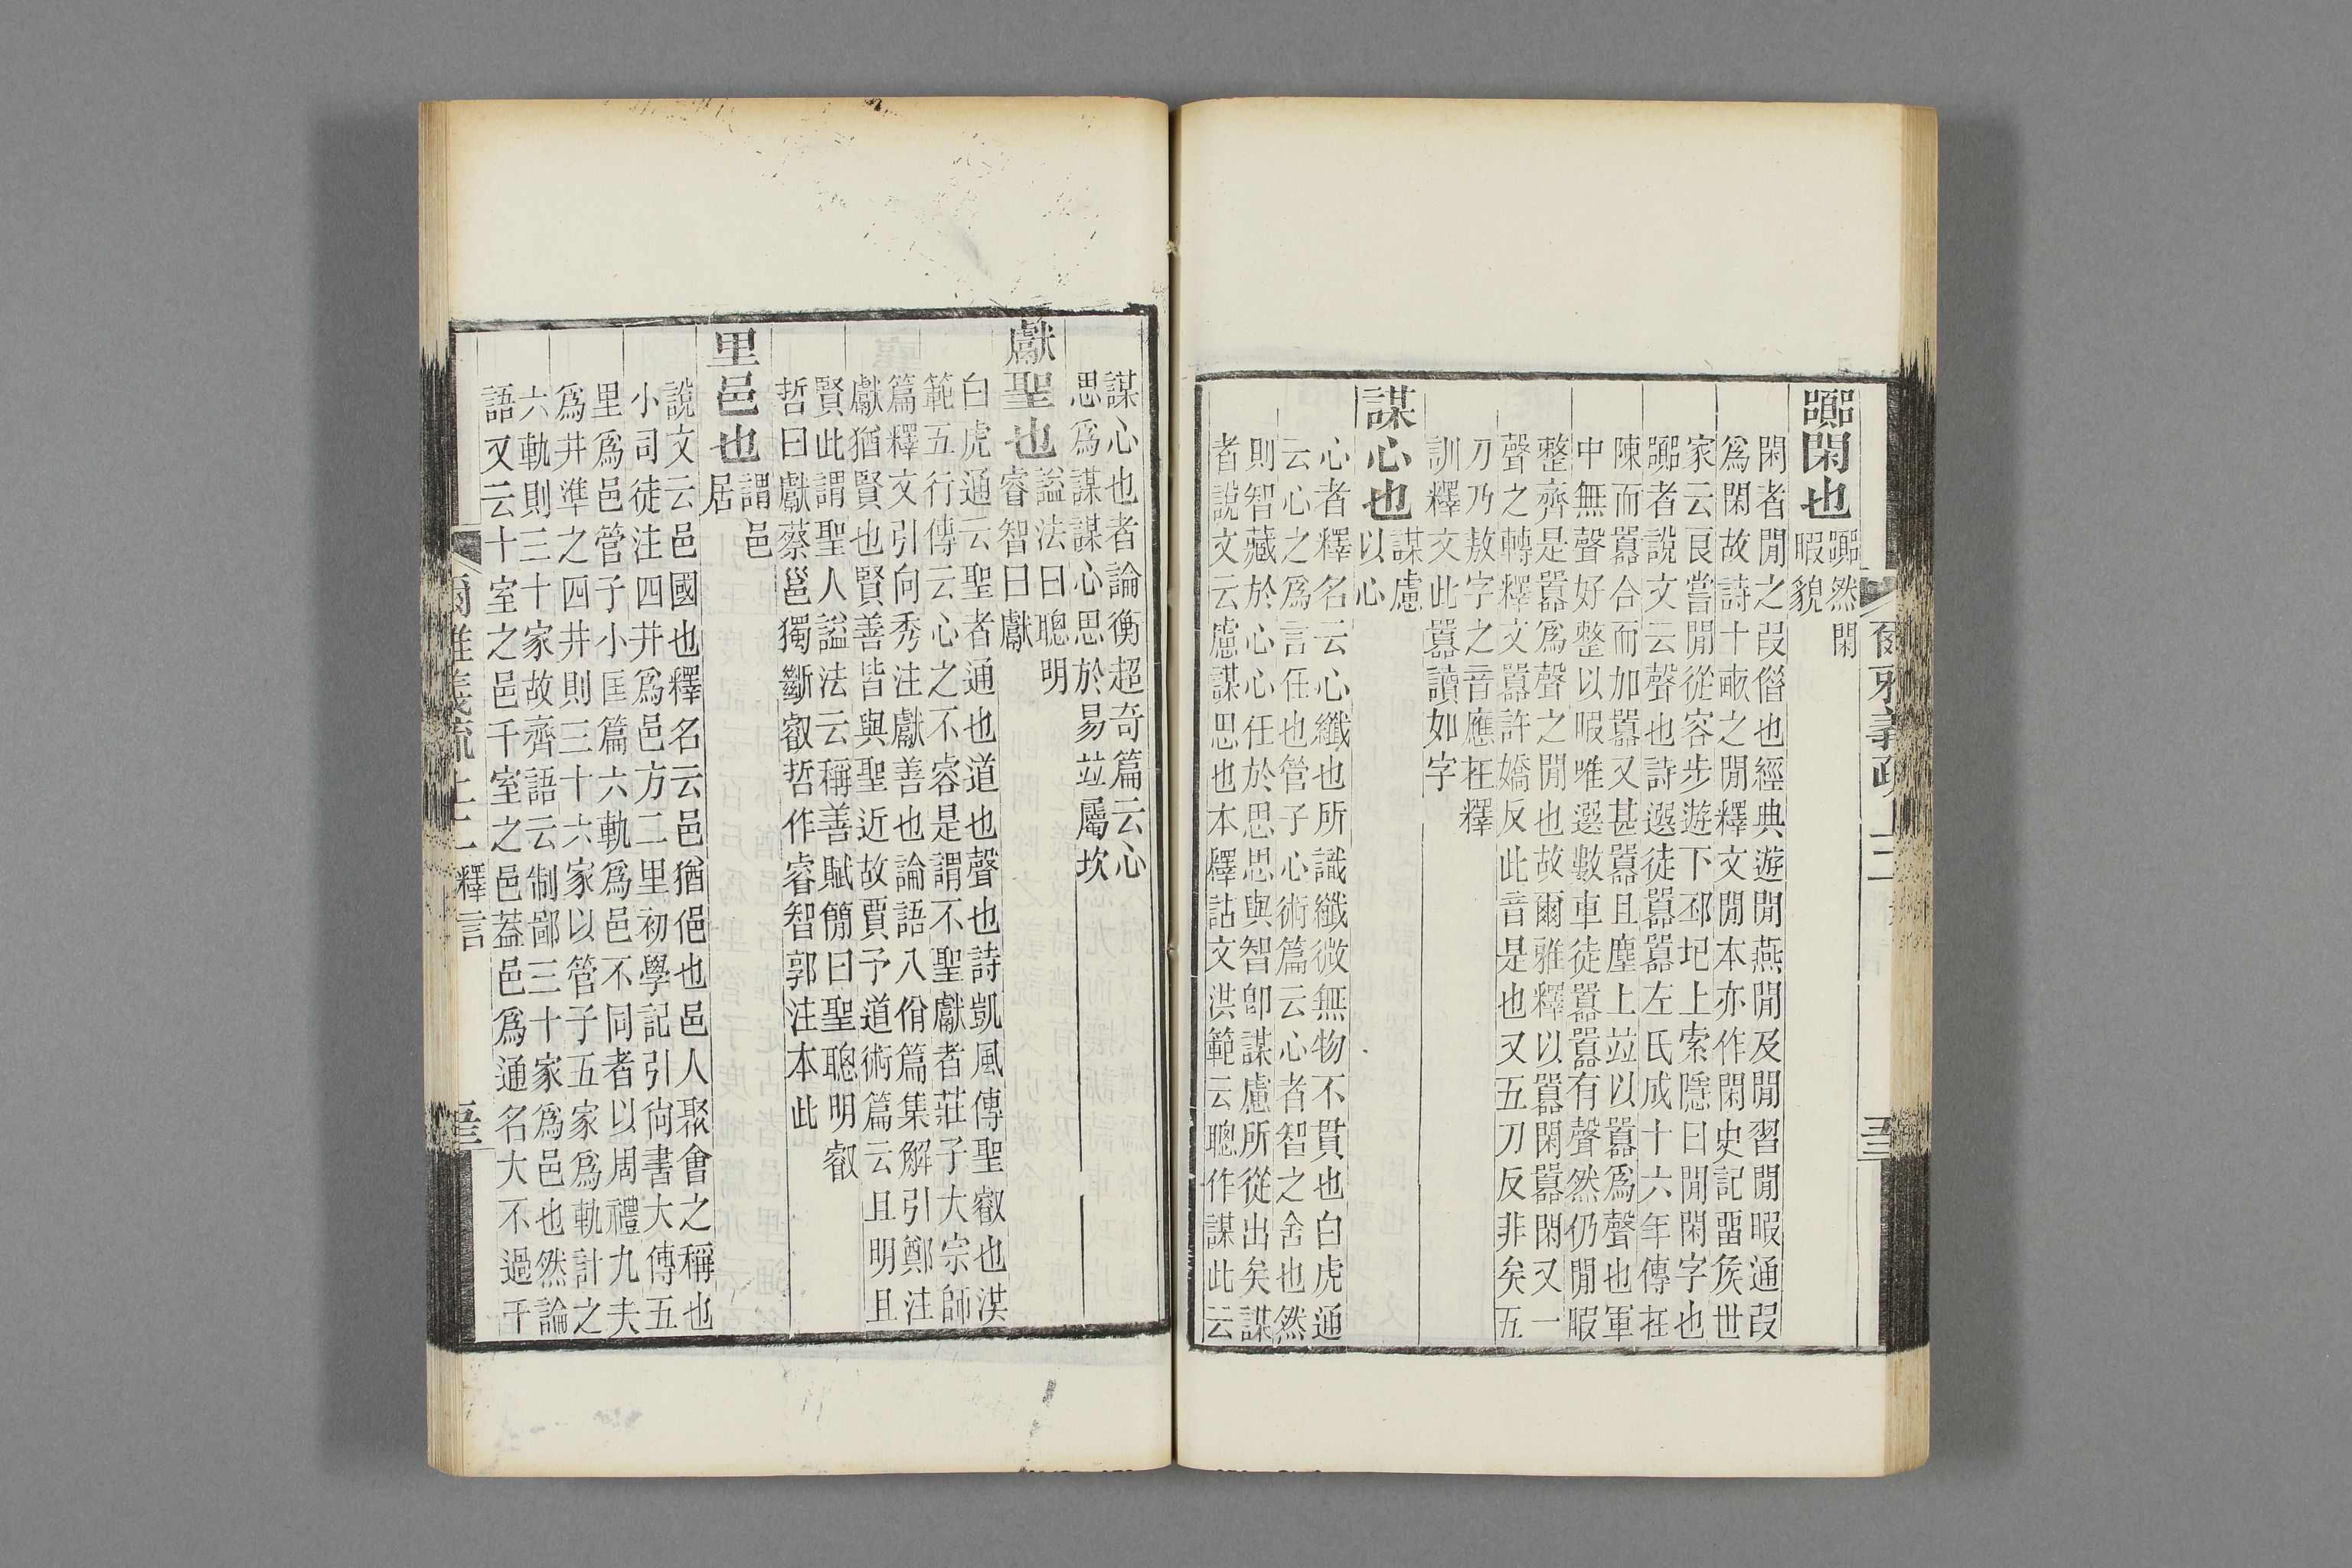 爾雅義疏上二
五三
嚻閑也
嚻然閑
暇貌
閑者閒之叚偺也經典遊閒燕閒及閒習閒暇通叚
爲閑故詩十畞之閒釋文閒本亦作閑史記畱矦世
家云良嘗閒從容步遊下邳圯上索隱曰閒閑字也
嚻者說文云聲也詩選徒嚻嚻左氏成十六年傳在
陳而嚻合而加嚻又甚嚻且塵上竝以嚻爲聲也軍
中無聲好整以暇唯選數車徒嚻嚻有聲然仍閒暇
整齊是嚻爲聲之閒也故爾雅釋以嚻閑嚻閑又一
聲之轉釋文嚻許嬌反此音是也又五刀反非矣五
刀乃敖字之音應在釋
訓釋文此嚻讀如字
謀心也
謀慮
以心
心者釋名云心纖也所識纖微無物不貫也白虎通
云心之爲言任也管子心術篇云心者智之舍也然
則智藏於心心任於思思與智卽謀慮所從出矣謀
者說文云慮謀思也本釋詁文洪範云聰作謀此云
謀心也者論衡超奇篇云心
思爲謀謀心思於易竝屬坎
獻聖也
謚法曰聰明
睿智曰獻
白虎通云聖者通也道也聲也詩凱風傳聖叡也洪
範五行傳云心之不容是謂不聖獻者莊子大宗師
篇釋文引向秀注獻善也論語八佾篇集解引鄭注
獻猶賢也賢善皆與聖近故賈子道術篇云且明且
賢此謂聖人謚法云稱善賦簡曰聖聰明叡
哲曰獻蔡邕獨斷叡哲作睿智郭注本此
里邑也
謂邑
居
說文云邑國也釋名云邑猶俋也邑人聚會之稱也
小司徒注四井爲邑方二里初學記引尙書大傳五
里爲邑管子小匡篇六軌爲邑不同者以周禮九夫
爲井準之四井則三十六家以管子五家爲軌計之
六軌則三十家故齊語云制鄙三十家爲邑也然論
語又云十室之邑千室之邑蓋邑爲通名大不過千
爾雅義疏上二釋言
五三